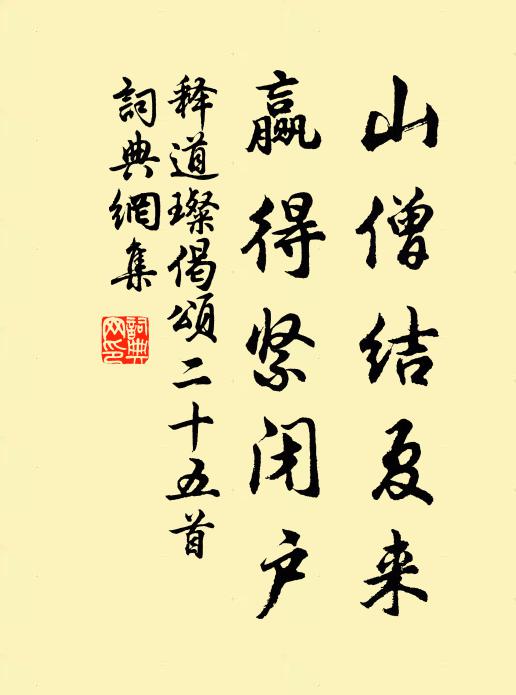 山僧结夏来
赢得紧闭户
释道璨偈颂二十五首
詞典網集
詞典网印